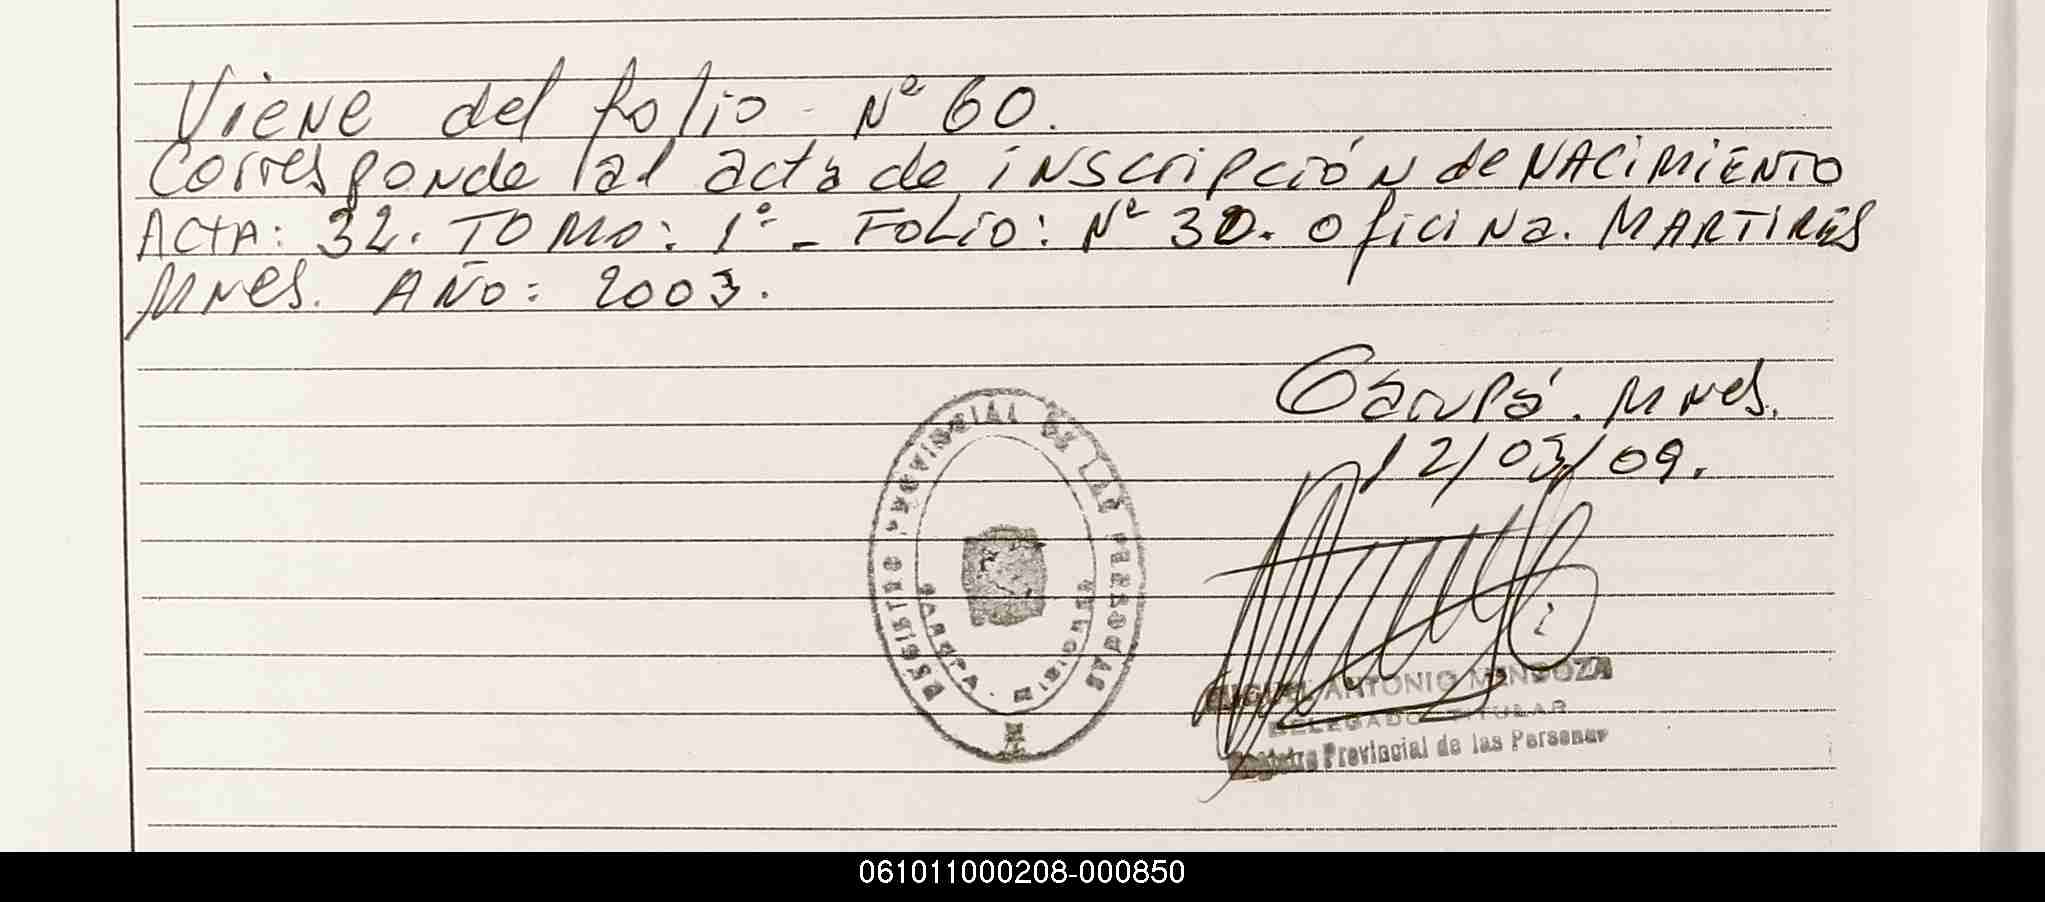 Viene del folio - Nº 60.
Corresponde al acta de inscripción de NACIMIENTO
ACTA: 32. TOMO: 1º - FOLIO: Nº 30. Oficina. MARTIRES
Mnes. AÑO: 2003.
Garupá. Mnes.
12/03/09.
REGISTRO PROVINCIAL DE LAS PERSONAS
MIGUEL ANTONIO MENDOZA
DELEGADO TITULAR
Registro Provincial de las Personas
061011000208-000850